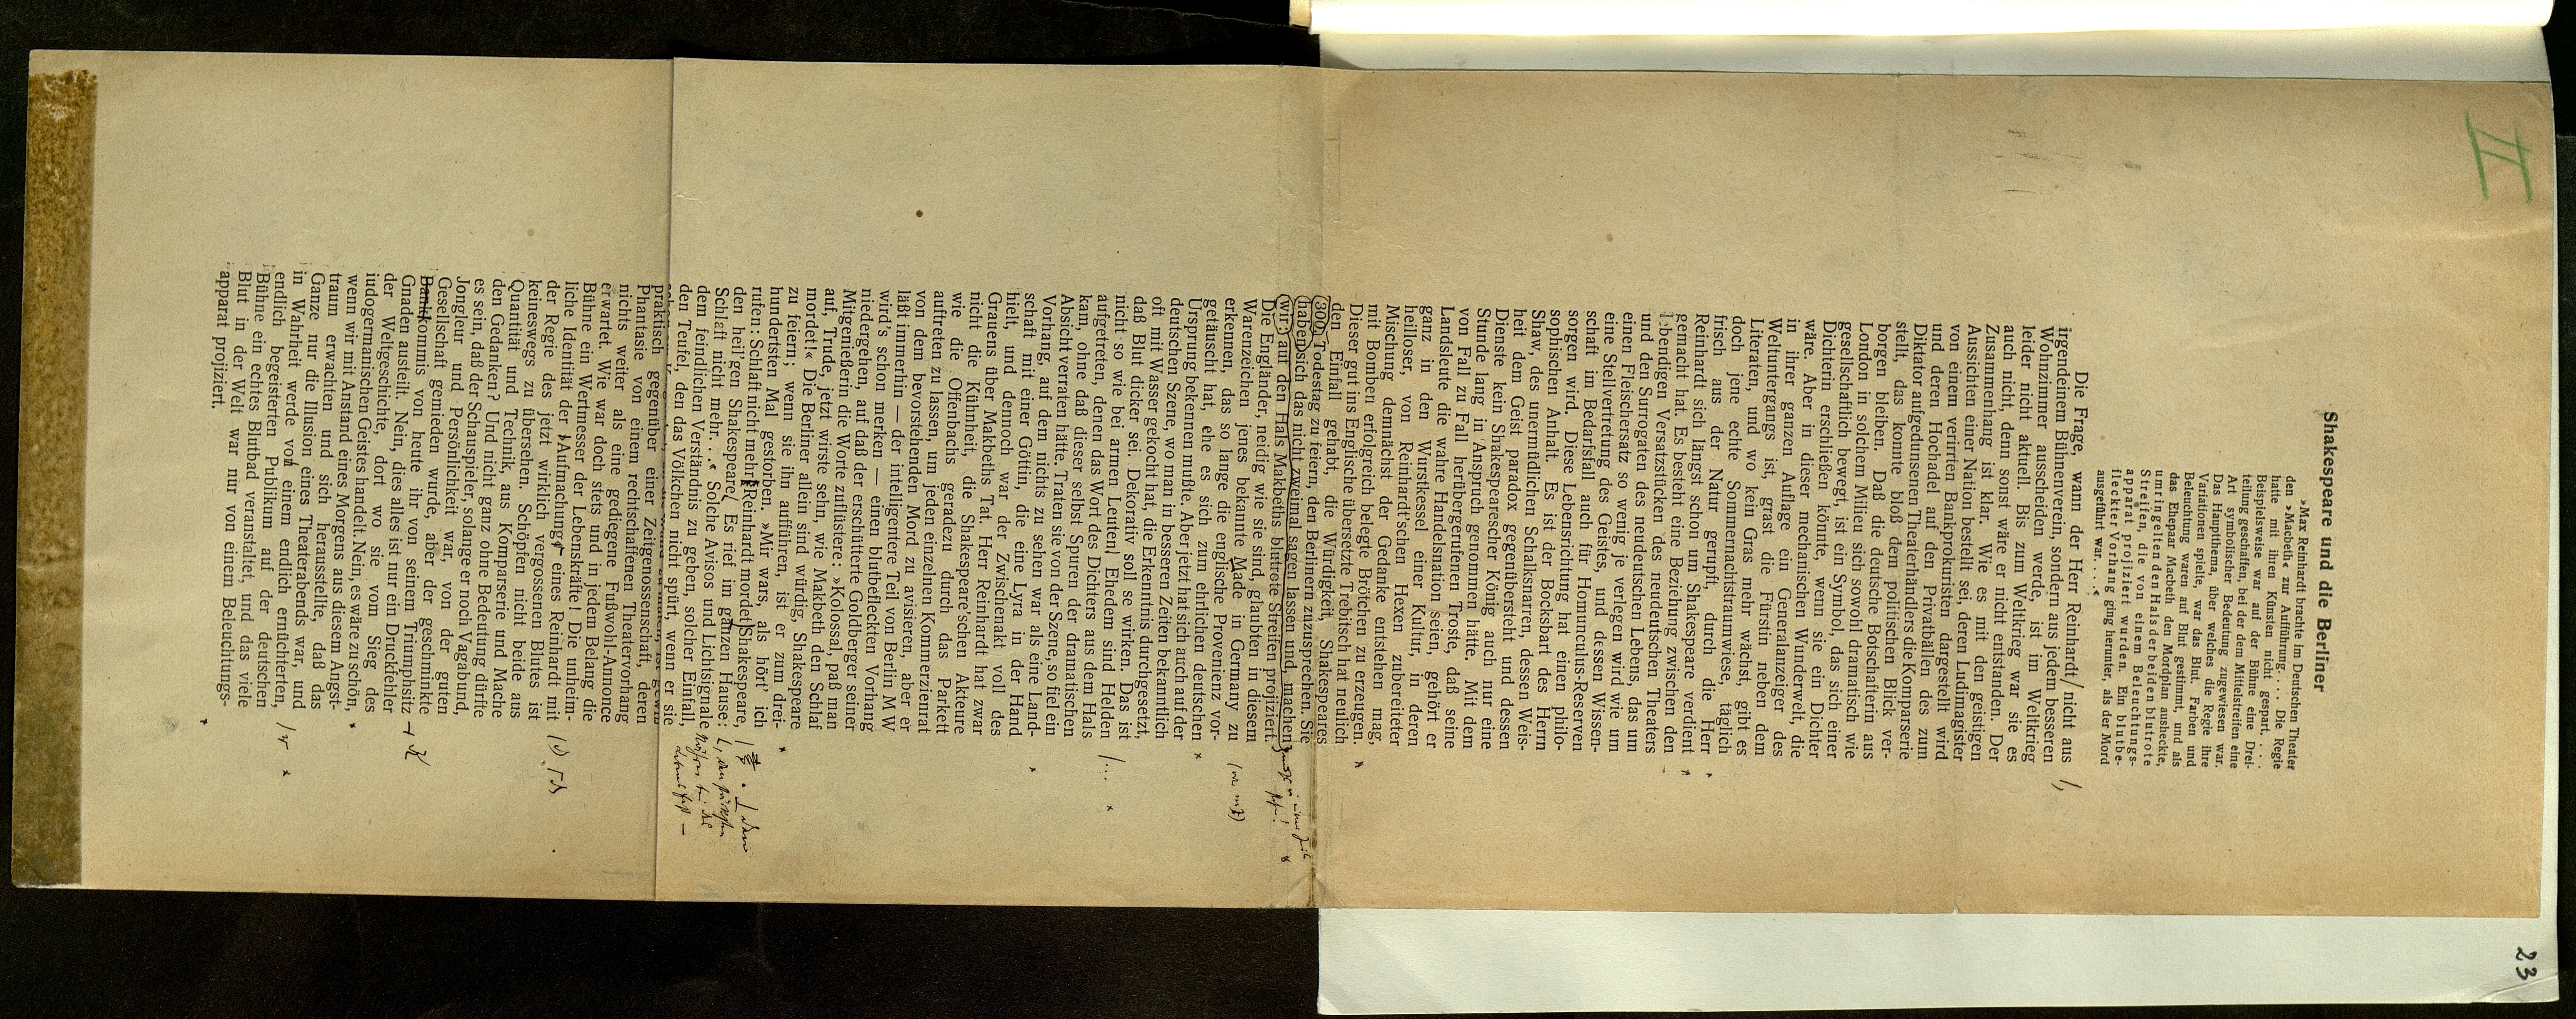 II
23
Shakespeare und die Berliner
»Max Reinhardt brachte im Deutschen Theater
den »Macbeth« zur Aufführung. . . . Die Regie
hatte mit ihren Künsten nicht gespart. . . .
Beispielsweise war auf der Bühne eine Drei-
teilung geschaffen, bei der dem Mittelstreifen eine
Art symbolischer Bedeutung zugewiesen war.
Das Hauptthema, über welches die Regie ihre
Variationen spielte, war das Blut. Farben und
Beleuchtung waren auf Blut gestimmt, und als
das Ehepaar Macbeth den Mordplan ausheckte,
umringelten den Hals der beiden blutrote
Streifen, die von einem Beleuchtungs-
apparat projiziert wurden. Ein blutbe-
fleckter Vorhang ging herunter, als der Mord
ausgeführt war. . . .«
Die Frage, wann der Herr Reinhardt/ nicht aus /,
irgendeinem Bühnenverein, sondern aus jedem besseren
Wohnzimmer ausscheiden werde, ist im Weltkrieg
leider nicht aktuell. Bis zum Weltkrieg war sie es
auch nicht, denn sonst wäre er nicht entstanden. Der
Zusammenhang ist klar. Wie es mit den geistigen
Aussichten einer Nation bestellt sei, deren Ludimagister
von einem verirrten Bankprokuristen dargestellt wird
und deren Hochadel auf den Privatbällen des zum
Diktator aufgedunsenen Theaterhändlers die Komparserie
stellt, das konnte bloß dem politischen Blick ver-
borgen bleiben. Daß die deutsche Botschafterin aus
London in solchem Milieu sich sowohl dramatisch wie
gesellschaftlich bewegt, ist ein Symbol, das sich einer
Dichterin erschließen könnte, wenn sie ein Dichter
wäre. Aber in dieser mechanischen Wunderwelt, die
in ihrer ganzen Auflage ein Generalanzeiger des
Weltuntergangs ist, grast die Fürstin neben dem
Literaten, und wo kein Gras mehr wächst, gibt es
doch jene echte Sommernachtstraumwiese, täglich
frisch aus der Natur gerupft, durch die Herr
Reinhardt sich längst schon um Shakespeare verdient
gemacht hat. Es besteht eine Beziehung zwischen den
lebendigen Versatzstücken des neudeutschen Theaters
und den Surrogaten des neudeutschen Lebens, das um
einen Fleischersatz so wenig je verlegen wird wie um
eine Stellvertretung des Geistes, und dessen Wissen-
schaft im Bedarfsfall auch für Homunculus-Reserven
sorgen wird. Diese Lebensrichtung hat einen philo-
sophischen Anhalt. Es ist der Bocksbart des Herrn
Shaw, des unermüdlichen Schalksnarren, dessen Weis-
heit dem Geist paradox gegenübersteht und dessen
Dienste kein Shakespearescher König auch nur eine
Stunde lang in Anspruch genommen hätte. Mit dem
von Fall zu Fall herübergerufenen Trost, daß seine
Landsleute die wahre Handelsnation seien, gehört er
ganz in den Wurstkessel einer Kultur, in deren
heilloser, von Reinhardt'schen Hexen zubereiteter
Mischung demnächst der Gedanke entstehen mag,
mit Bomben erfolgreich belegte Brötchen zu erzeugen.
Dieser gut ins Englische übersetzte Trebitsch hat neulich
den Einfall gehabt, die Würdigkeit, Shakespeares
300. Todestag zu feiern, den Berlinern zuzusprechen. Sie
haben sich das nicht zweimal sagen lassen und machen
wir: auf den Hals Makbeths blutrote Streifen projiziert.
Die Engländer, neidig wie sie sind, glaubten in diesem
Warenzeichen jenes bekannte Made in Germany zu
erkennen, das so lange die englische Provenienz vor-
getäuscht hat, ehe es sich zum ehrlichen deutschen
Ursprung bekennen mußte. Aber jetzt hat sich auch auf der
deutschen Szene, wo man in besseren Zeiten bekanntlich
oft mit Wasser gekocht hat, die Erkenntnis durchgesetzt,
daß Blut dicker sei. Dekorativ soll se wirken. Das ist
nicht so wie bei armen Leuten/ Ehedem sind Helden /...
aufgetreten, denen das Wort des Dichters aus dem Hals
kam, ohne daß dieser selbst Spuren der dramatischen
Absicht verraten hätte. Traten sie von der Szene, so fiel ein
Vorhang, auf dem nichts zu sehen war als eine Land-
schaft mit einer Göttin, die eine Lyra in der Hand
hielt, und dennoch war der Zwischenakt voll des
Grauens über Makbeths Tat. Herr Reinhardt hat zwar
nicht die Kühnheit, die Shakespeare'schen Akteure
wie die Offenbachs geradezu durch das Parkett
auftreten zu lassen, um jeden einzelnen Kommerzienrat
von dem bevorstehenden Mord zu avisieren, aber er
läßt immerhin — der intelligentere Teil von Berlin M W
wird's schon merken — einen blutbefleckten Vorhang
niedergehen, auf daß der erschütterte Goldberger seiner
Mitgenießerin die Worte zuflüstere: »Kolossal, paß man
auf, Trude, jetzt wirste sehn, wie Makbeth den Schlaf
mordet!« Die Berliner allein sind würdig, Shakespeare
zu feiern; wenn sie ihn aufführen, ist er zum drei-
hundertsten Mal gestorben. »Mir wars, als hört' ich
rufen: Schlaft nicht mehr! Reinhardt mordet Shakespeare,
den heil'gen Shakespeare/ Es rief im ganzen Hause:
Schlaft nicht mehr. . .« Solche Avisos und Lichtsignale
dem feindlichen Verständnis zu geben, solcher Einfall,
den Teufel, den das Völkchen nicht spürt, wenn er sie
praktisch gegenüber einer Zeitgenossenschaft, deren
Phantasie von einem rechtschaffenen Theatervorhang
nichts weiter als eine gediegene Fußwohl-Annonce
erwartet. Wie war doch stets und in jedem Belang die
Bühne ein Wertmesser der Lebenskräfte! Die unheim-
liche Identität der Aufmachung eines Reinhardt mit
der Regie des jetzt wirklich vergossenen Blutes ist
keineswegs zu übersehen. Schöpfen nicht beide aus
Quantität und Technik, aus Komparserie und Mache
den Gedanken? Und nicht ganz ohne Bedeutung dürfte
es sein, daß der Schauspieler, solange er noch Vagabund,
Jongleur und Persönlichkeit war, von der guten
Gesellschaft gemieden wurde, aber der geschminkte
Bankkommis von heute ihr von seinem Triumphsitz
Gnaden austeilt. Nein, dies alles ist nur ein Druckfehler
der Weltgeschichte, dort wo sie vom Sieg des
judogermanischen Geistes handelt. Nein, es wäre zu schön,
wenn wir mit Anstand eines Morgens aus diesem Angst-
traum erwachten und sich herausstellte, daß das
Ganze nur die Illusion eines Theaterabends war, und
in Wahrheit werde von einem endlich ernüchterten,
endlich begeisterten Publikum auf der deutschen
Bühne ein echtes Blutbad veranstaltet, und das viele
Blut in der Welt war nur von einem Beleuchtungs-
apparat projiziert.